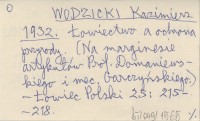 WODZICKI Kazimierz
1932. Łowiectwo a ochrona
przyrody. (Na marginesie
artykułów Prof. Domaniews-
kiego i mec. Garczyńskiego.)
– Łowiec Polski 25: 215–
–218.